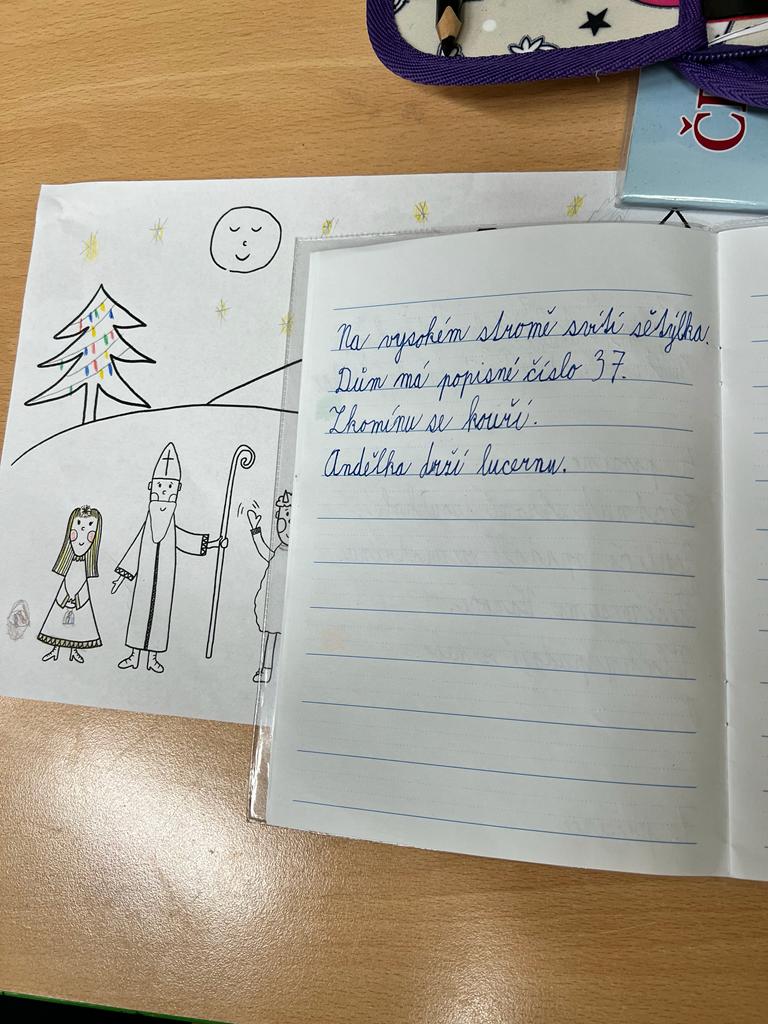 Č
Na vysokém stromě svítí sětýlka.
Dům má popisné číslo 37.
Z komínu se kouří.
Andělka drží lucernu.